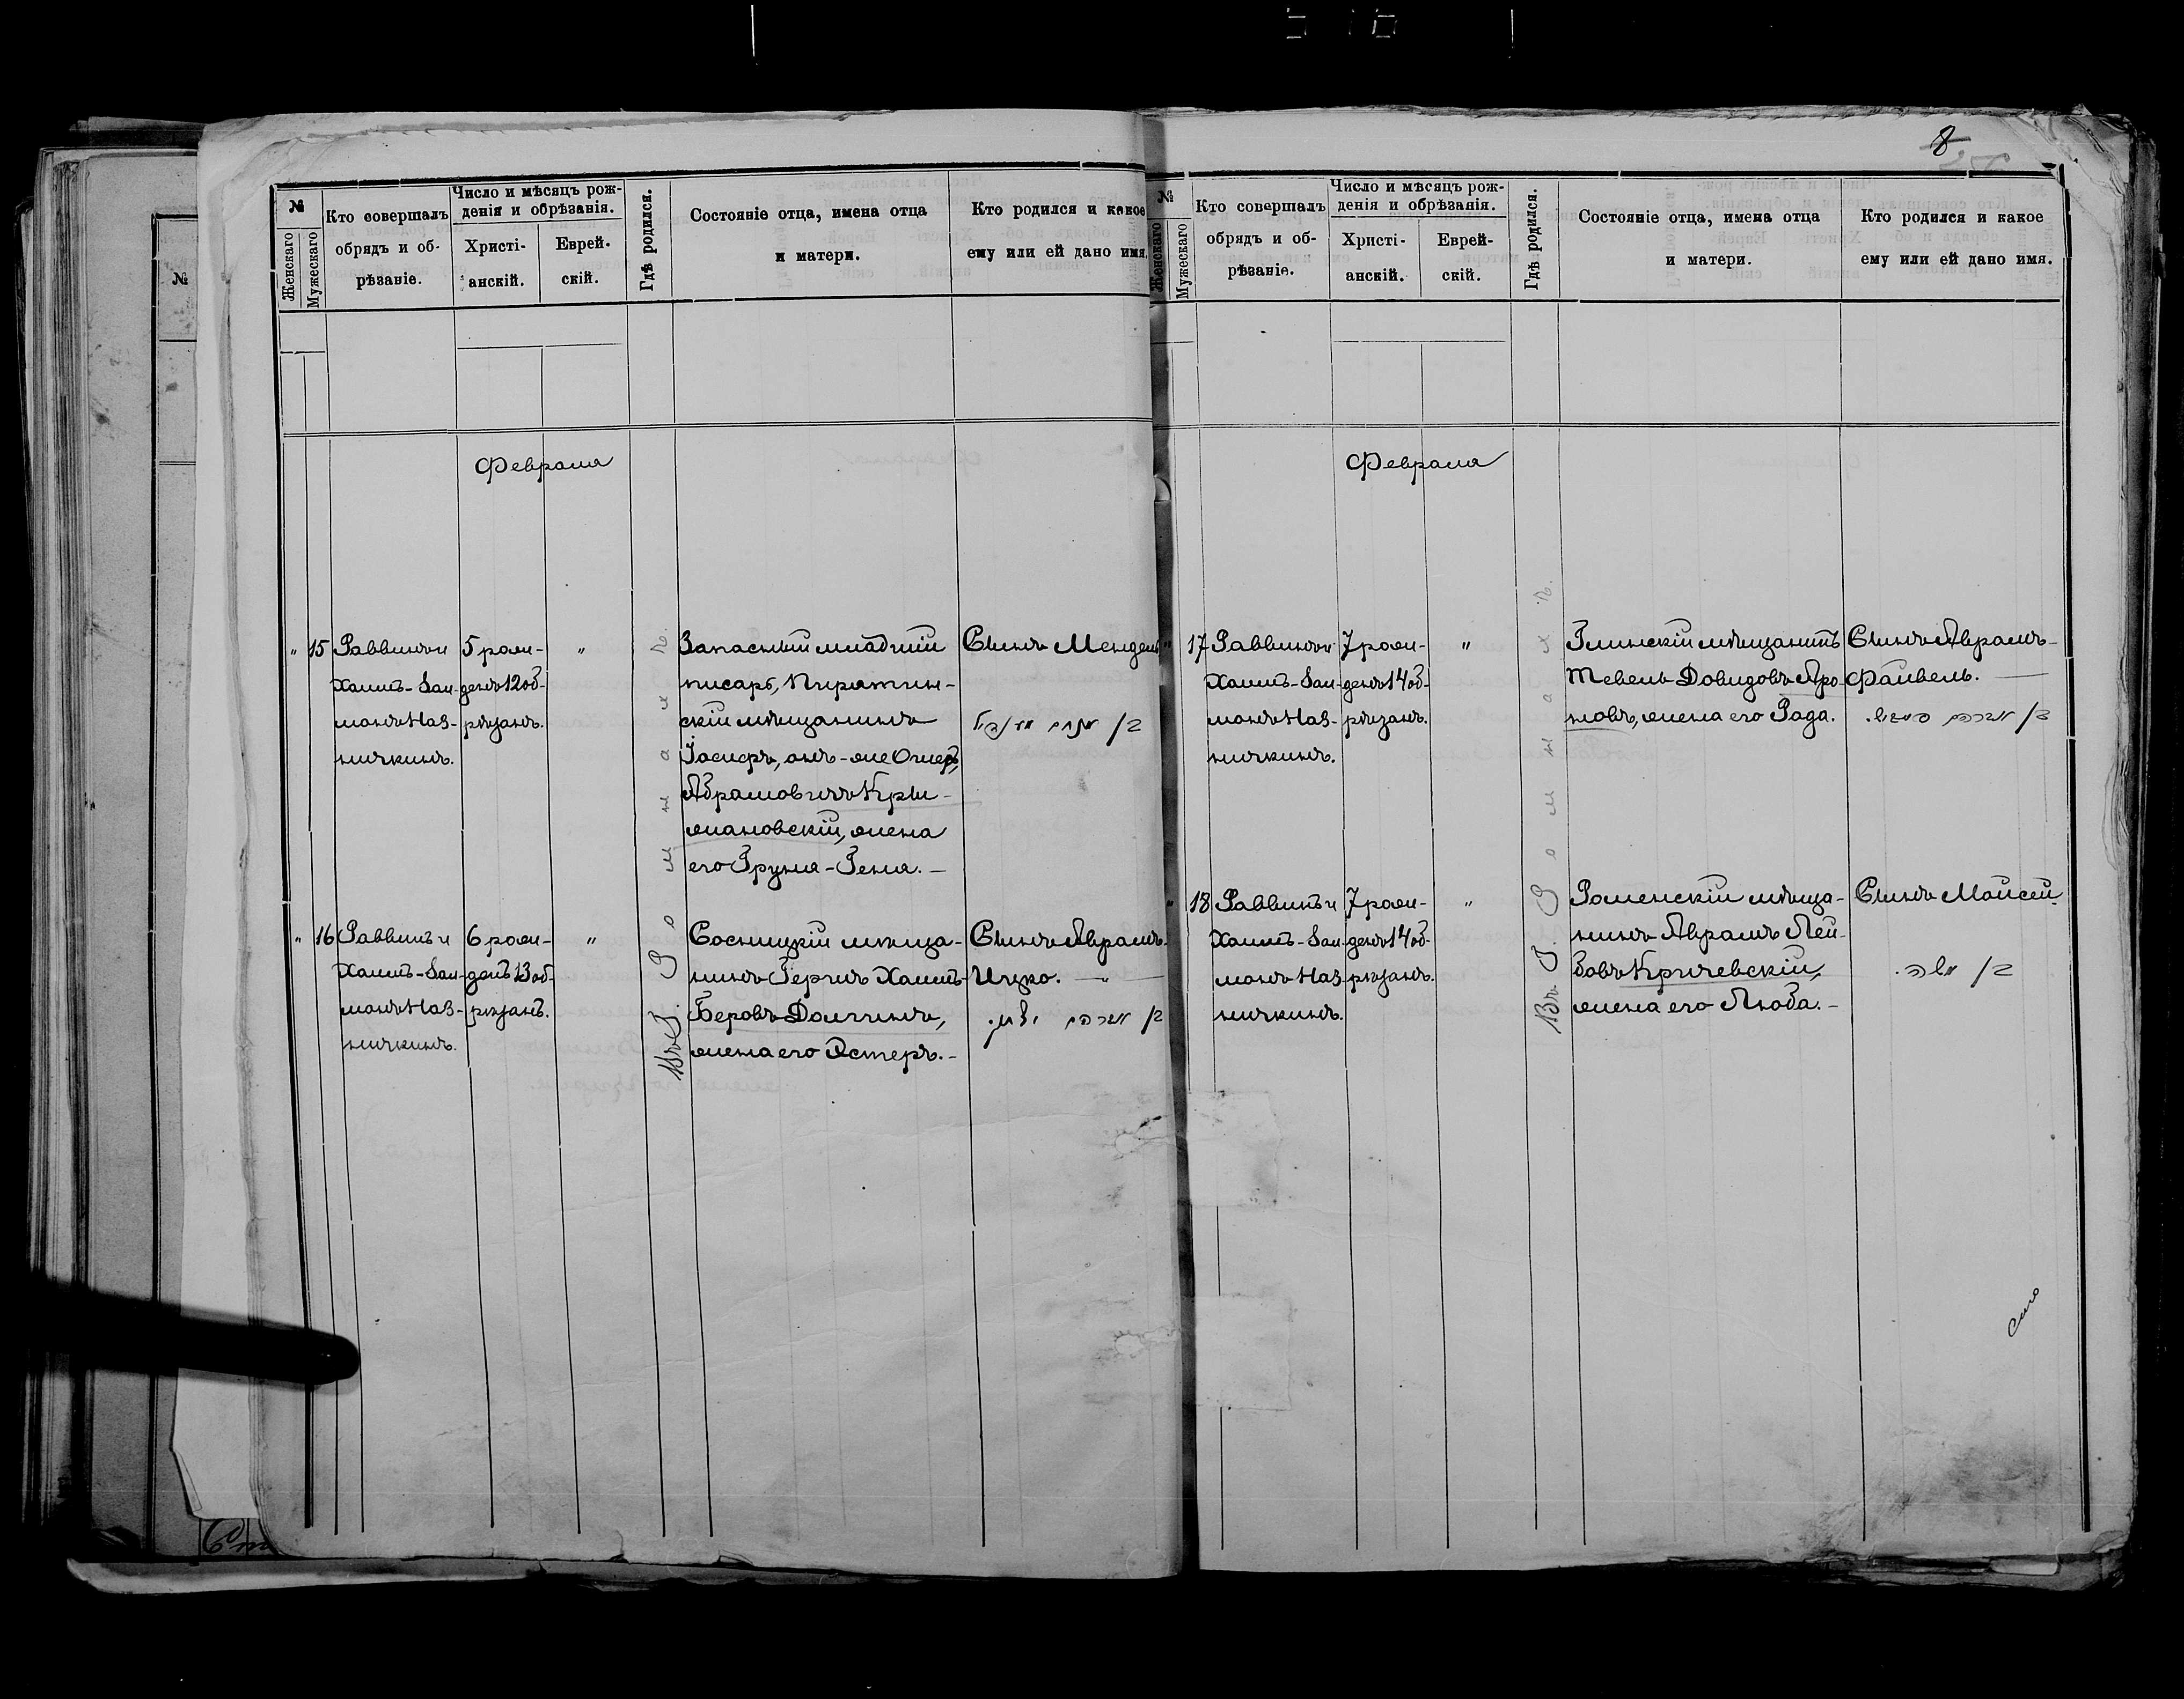 8
№
Женскаго
Мужескаго
Кто совершалъ
обрядъ и об-
рѣзаніе.
Число и мѣсяцъ рож-
денія и обрѣзанія.
Христі-
анскій.
Еврей-
скій.
Гдѣ родился.
Состояніе отца, имена отца
и матери.
Кто родился и какое
ему или ей дано имя.
Февраля
" 15
Раввинъ и
Хаимъ-Зал-
манъ Наз-
ничкинъ.
5 рож-
денъ 12 об-
рѣзанъ.
"
Запасный младшій
писарь, Пирятин-
скій мѣщанинъ
Іосифъ, онъ-же Ошеръ
Абрамовичъ Кры-
жановскій, жена
его Груня-Геня. —
Сынъ Мендель
" 16
Раввинъ и
Хаимъ-Зал-
манъ Наз-
ничкинъ.
6 рож-
денъ 13 об-
рѣзанъ.
"
Въ Г. Ромнахъ.
Сосницкій мѣща-
нинъ Гершъ Хаимъ-
Беровъ Долгинъ,
жена его Эстеръ. —
Сынъ Абрамъ-
Ицко. — " —
בן אברהם יצחק.
№
Женскаго
Мужескаго
Кто совершалъ
обрядъ и об-
рѣзаніе.
Число и мѣсяцъ рож-
денія и обрѣзанія.
Христі-
анскій.
Еврей-
скій.
Гдѣ родился.
Состояніе отца, имена отца
и матери.
Кто родился и какое
ему или ей дано имя.
Февраля
" 17
Раввинъ и
Хаимъ-Зал-
манъ Наз-
ничкинъ.
7 рож-
денъ 14 об-
рѣзанъ.
"
Глинскій мѣщанинъ
Тевель Довидовъ Аро-
новъ, жена его Рада.
Сынъ Абрамъ-
Файвель. —
" 18
Раввинъ и
Хаимъ-Зал-
манъ Наз-
ничкинъ.
7 рож-
денъ 14 об-
рѣзанъ.
"
Въ Г. Ромнахъ.
Роменскій мѣща-
нинъ Абрамъ Лей-
бовъ Кричевскій,
жена его Люба. —
Сынъ Мойсей.
בן משה.